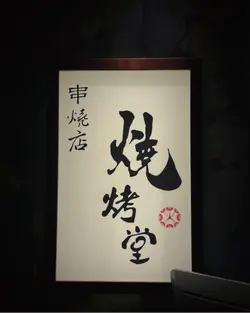 烧烤堂
串燒店